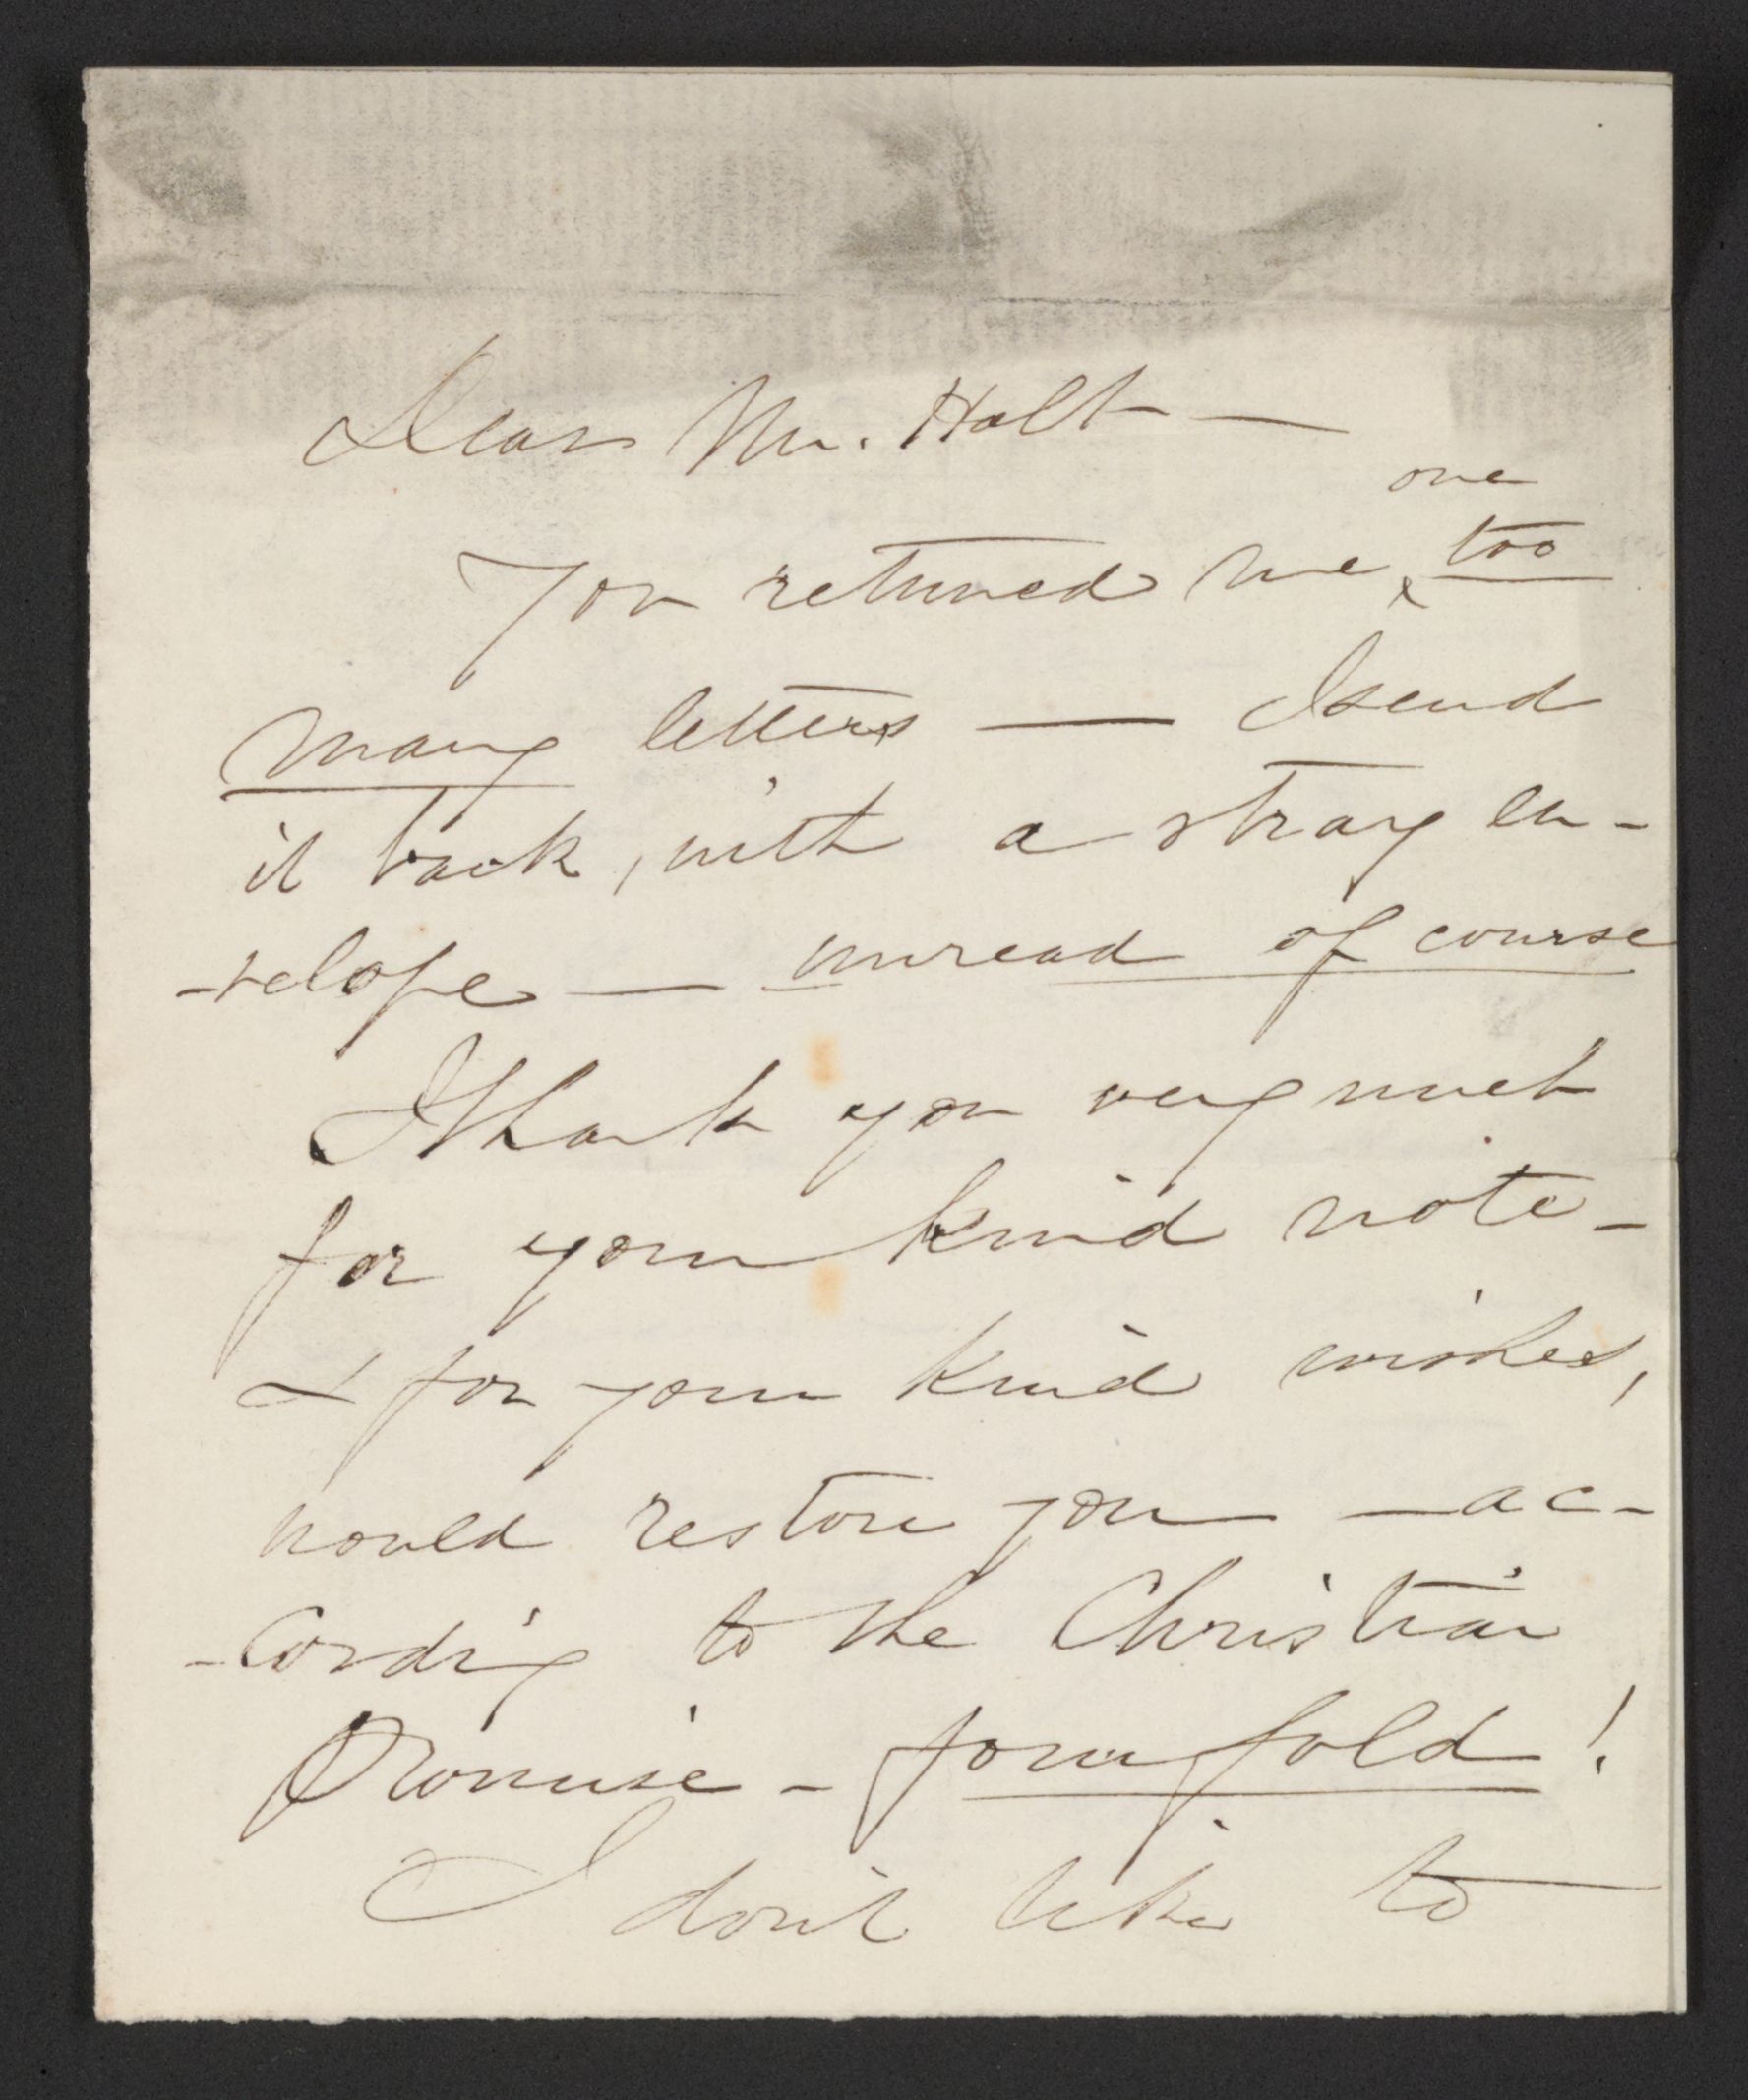 Dear Mr. Holt —
one
You returned me ‸ too
many letters — I send
it back, with a stray en-
-velope — unread of course
I thank you very much
for your kind note -
& for your kind wishes,
would restore you — ac-
-cording to the Christian
Promise - fourfold !
I don't like to